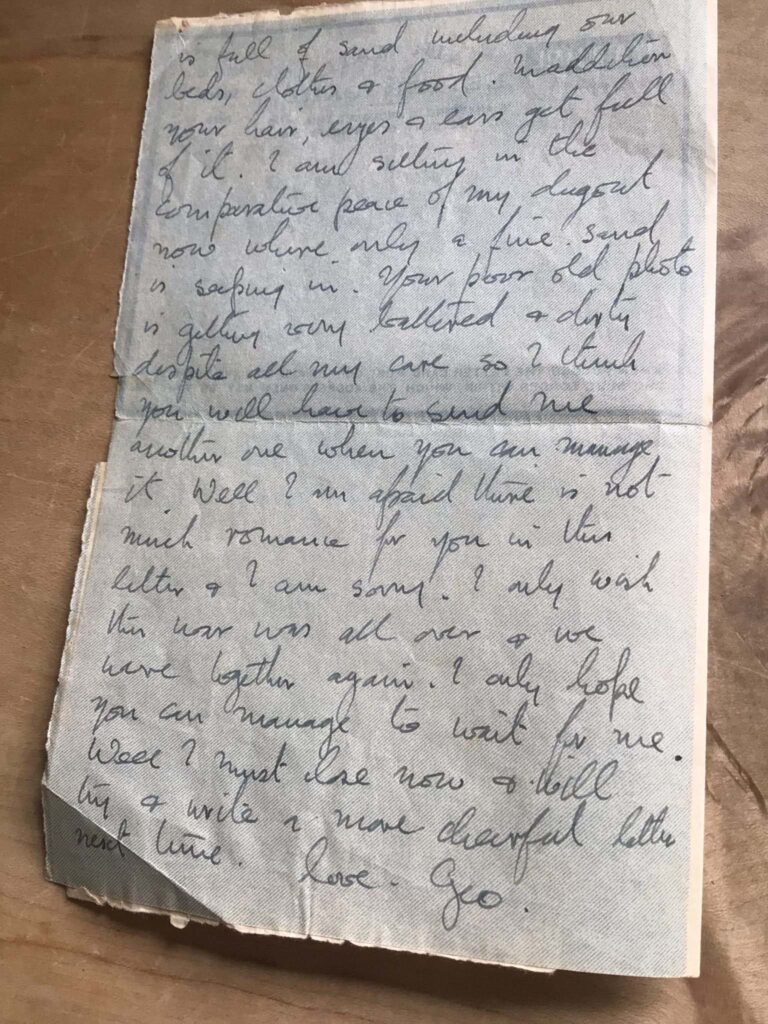 is full of sand including our
beds, clothes & food. In addition
your hair, eyes & ears get full
of it. I am sitting in the
comparative peace of my dugout
now where only a fine sand
is seeping in. Your poor old photo
is getting very battered & dirty
despite all my care so I think
you will have to send me
another one when you can manage
it Well I am afraid there is not
much romance for you in this
letter & I am sorry. I only wish
this war was all over & we
were together again. I only hope
you can manage to wait for me.
Well I must close now & will
try & write a more cheerful letter
next time. love. Geo.